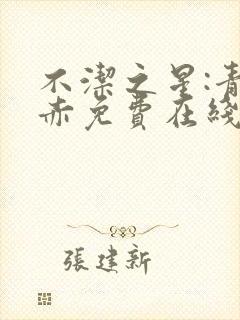 不潔之星:青
赤免費在綫
張建新